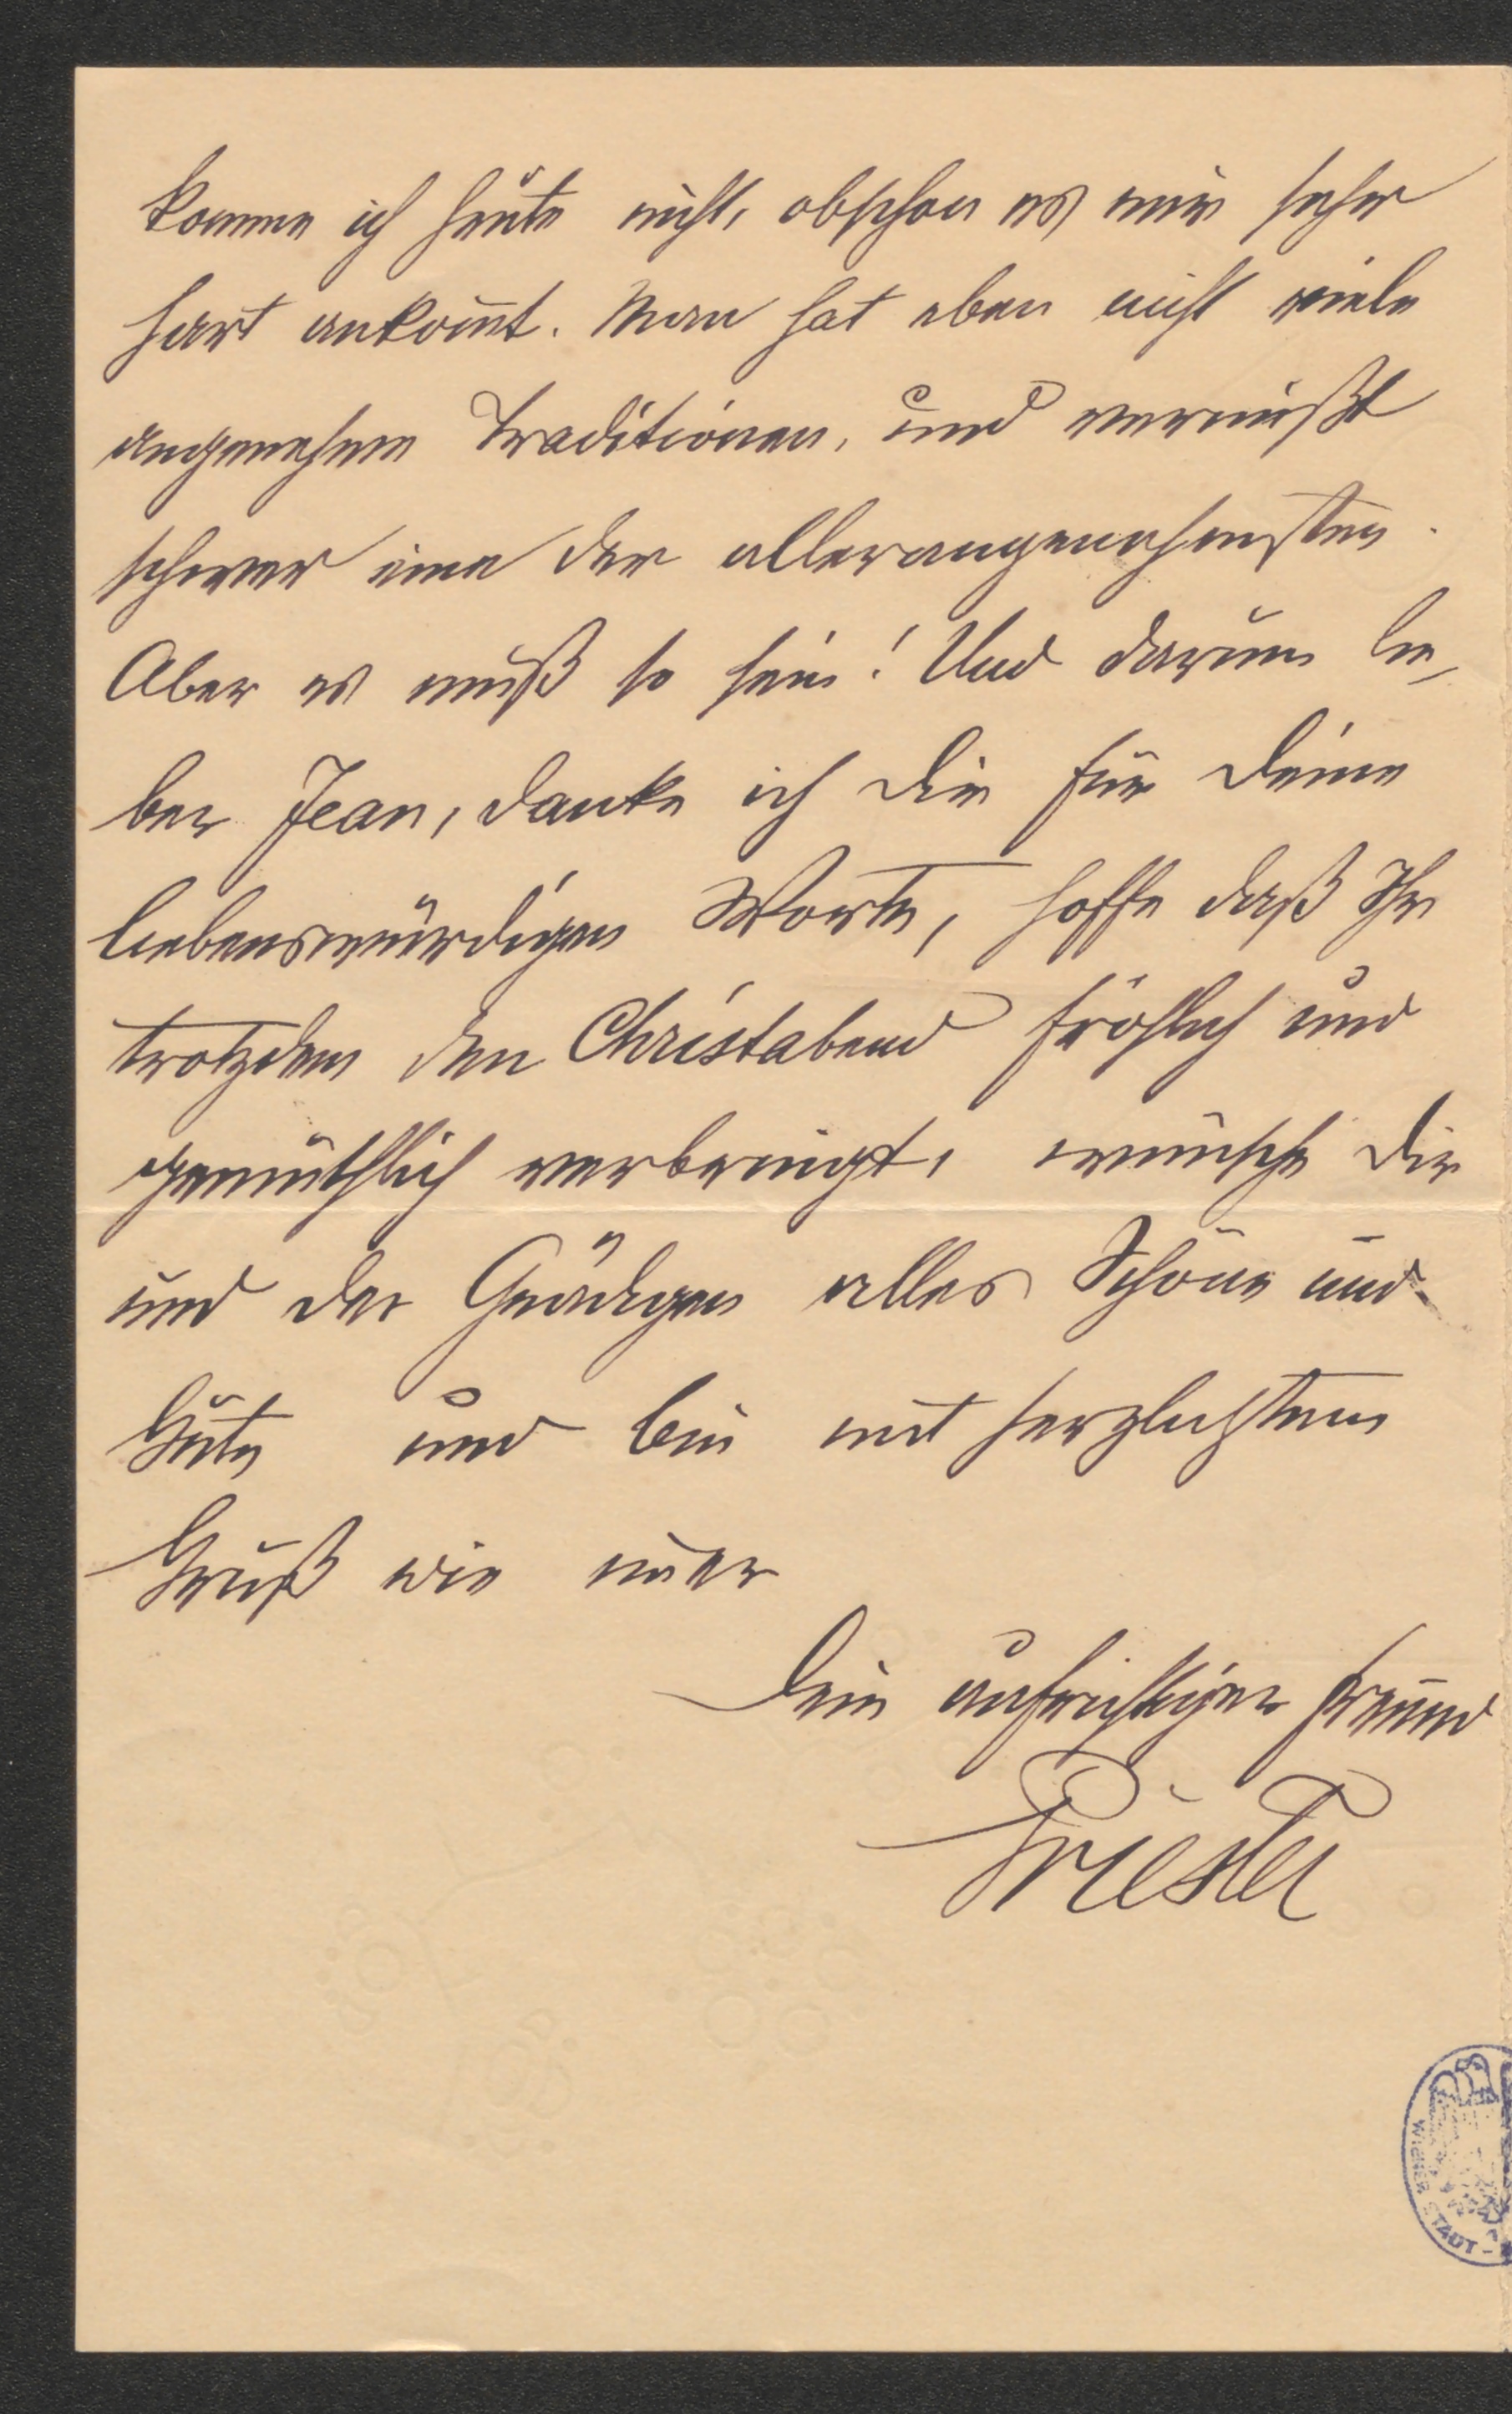 komme ich heute nicht, obschon es mir sehr
hart ankom̄t. Man hat eben nicht viele
angenehme Traditionen, und vermißt
schwer eine der allerangenehmsten.
Aber es muß so sein! Und darum lie-
ber Jean, danke ich Dir für Deine
liebenswürdigen Worte, hoffe daß Ihr
trotzdem den Christabend fröhlich und
gemüthlich verbringt, wünsche Dir
und der Gnädigen alles Schöne und
Gute und bin mit herzlichstem
Gruß wie im̄er
Dein aufrichtiger Freund
Priester
WIENER STADT-